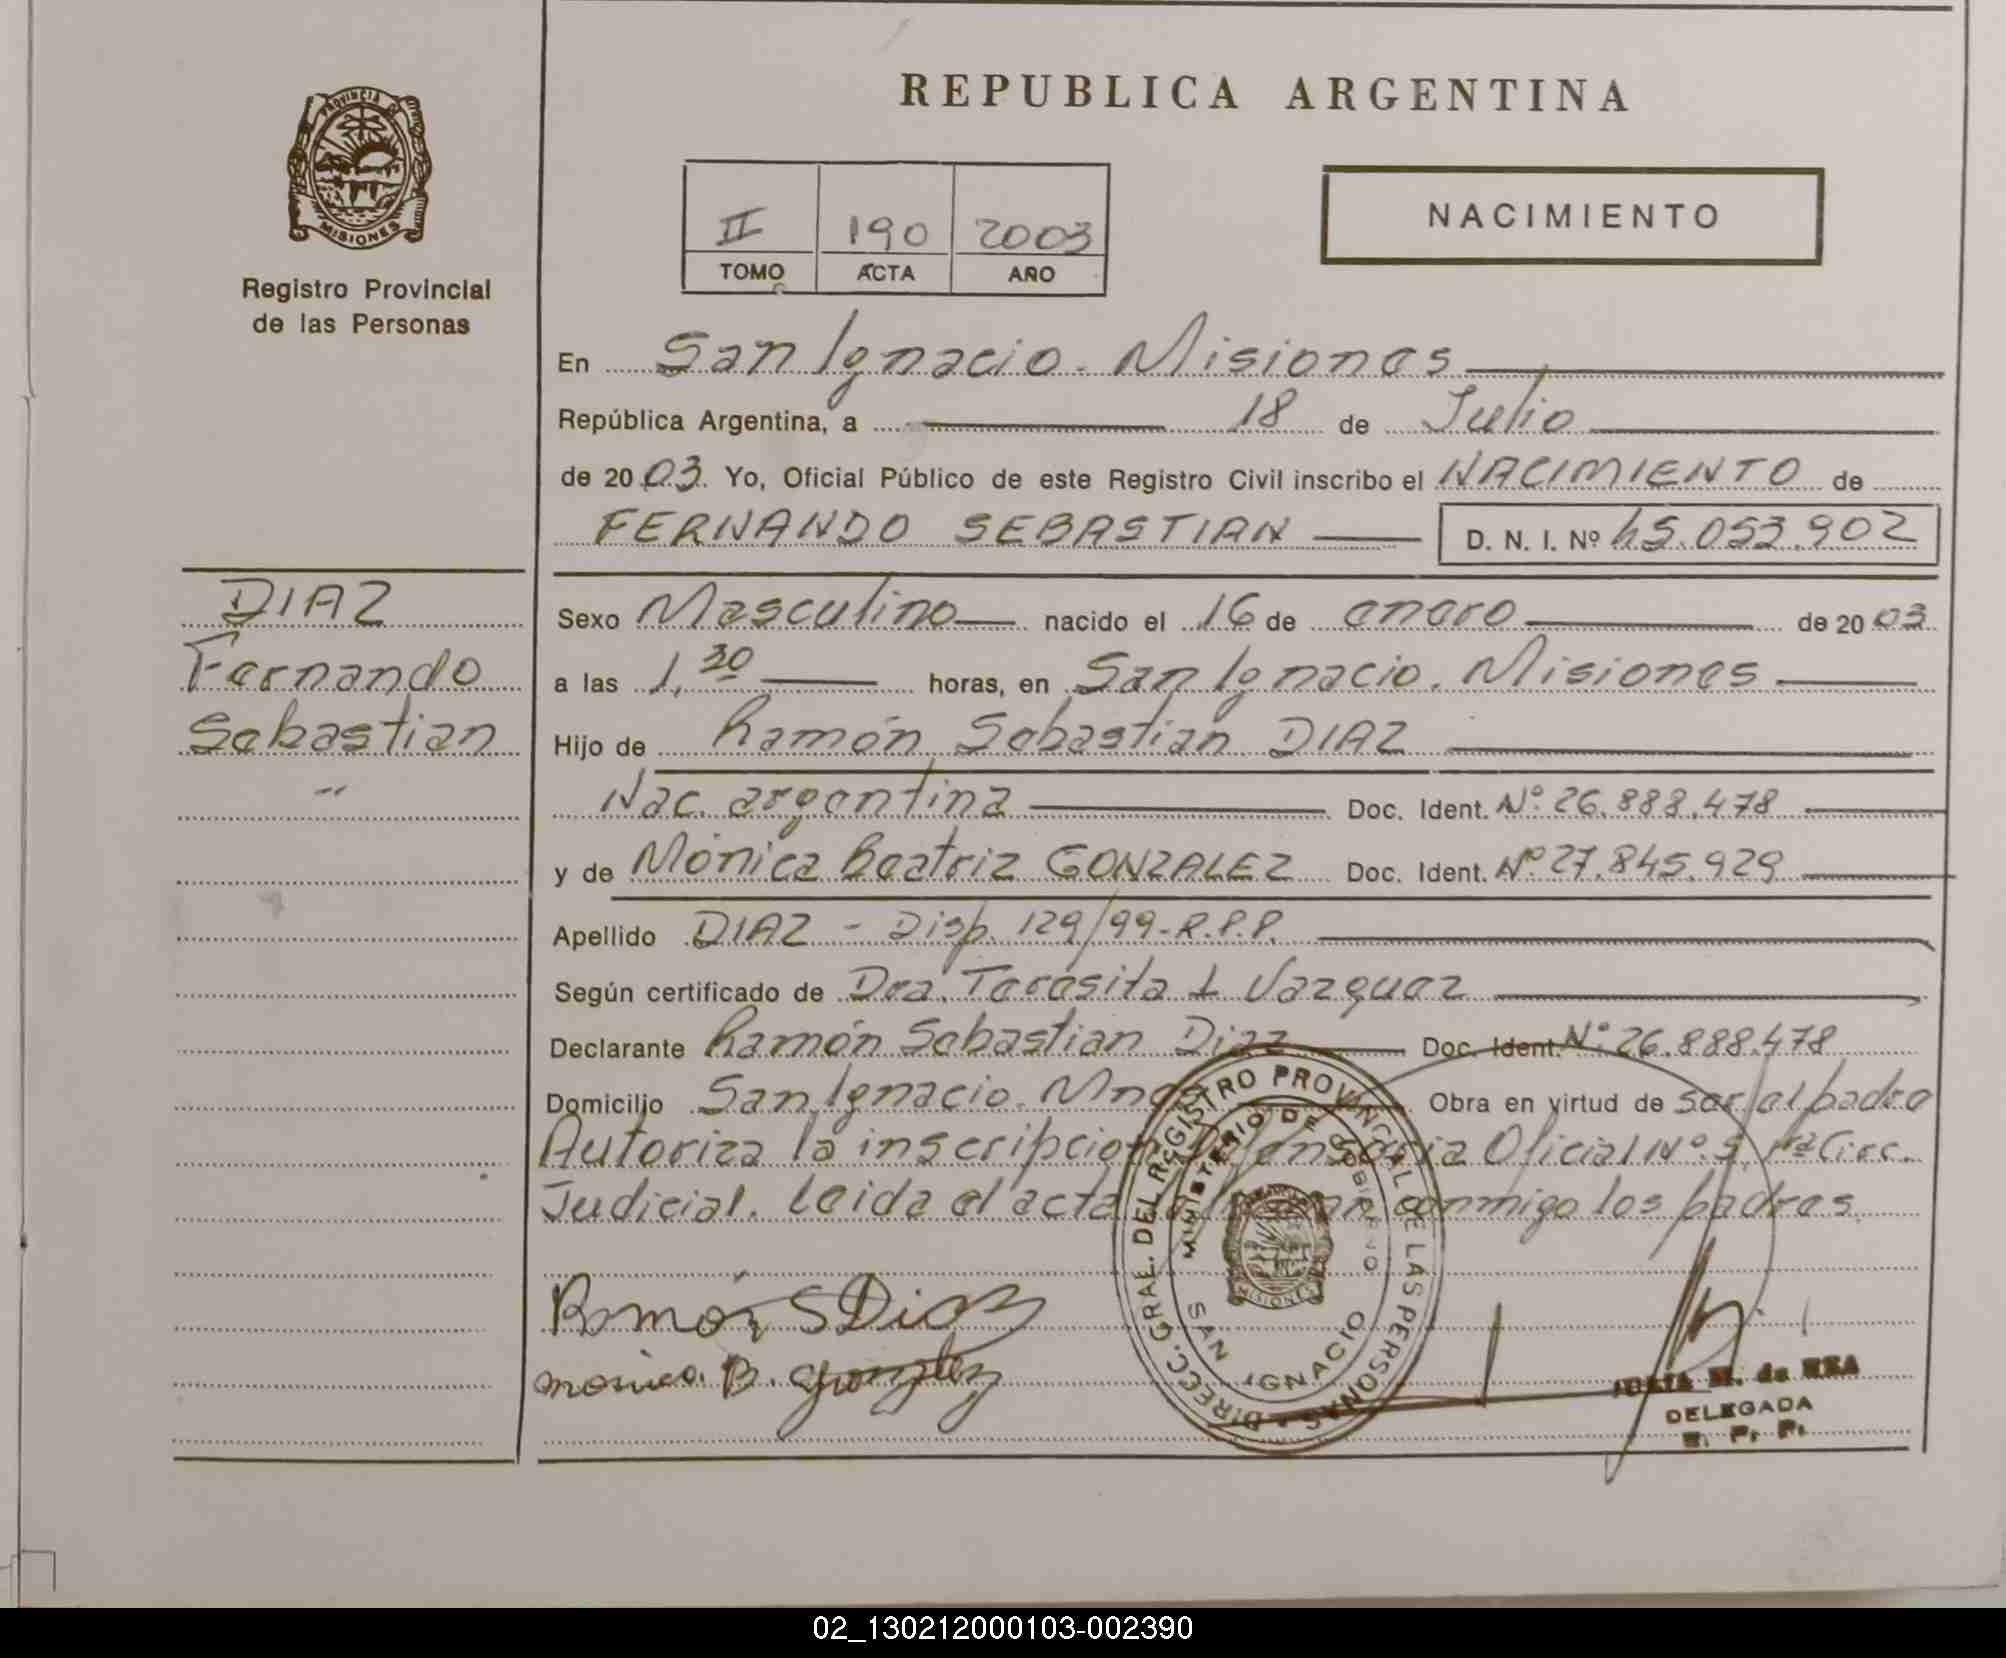 REPUBLICA ARGENTINA
PROVINCIA DE MISIONES
Registro Provincial
de las Personas
II 190 2003
TOMO ACTA AÑO
NACIMIENTO
En San Ignacio. Misiones
República Argentina, a 18 de Julio
de 2003. Yo, Oficial Público de este Registro Civil inscribo el NACIMIENTO de
FERNANDO SEBASTIAN D. N. I. Nº 45.053.902
DIAZ
Fernando
Sebastian
Sexo Masculino nacido el 16 de enero de 2003
a las 1,30 horas, en San Ignacio. Misiones
Hijo de Ramón Sebastian DIAZ
Nac. argentina Doc. Ident. Nº 26.888.478
y de Mónica Beatriz GONZALEZ Doc. Ident. Nº 27.845.929
Apellido DIAZ - Disp. 129/99-R.P.P.
Según certificado de Dra. Teresita L Vazquez
Declarante Ramón Sebastian Diaz Doc. Ident. Nº 26.888.478
Domicilio San Ignacio. Mnes Obra en virtud de ser el padre
Autoriza la inscripcion Defensoria Oficial Nº 5, 1ra Circ.
Judicial. Leida el acta la firman conmigo los padres.
Ramón S Diaz
monica B. Gonzalez
DIRECC. GRAL. DEL REGISTRO PROVINCIAL DE LAS PERSONAS
MINISTERIO DE GOBIERNO
MISIONES
SAN IGNACIO
M. de REA
DELEGADA
R. P. P.
02_130212000103-002390